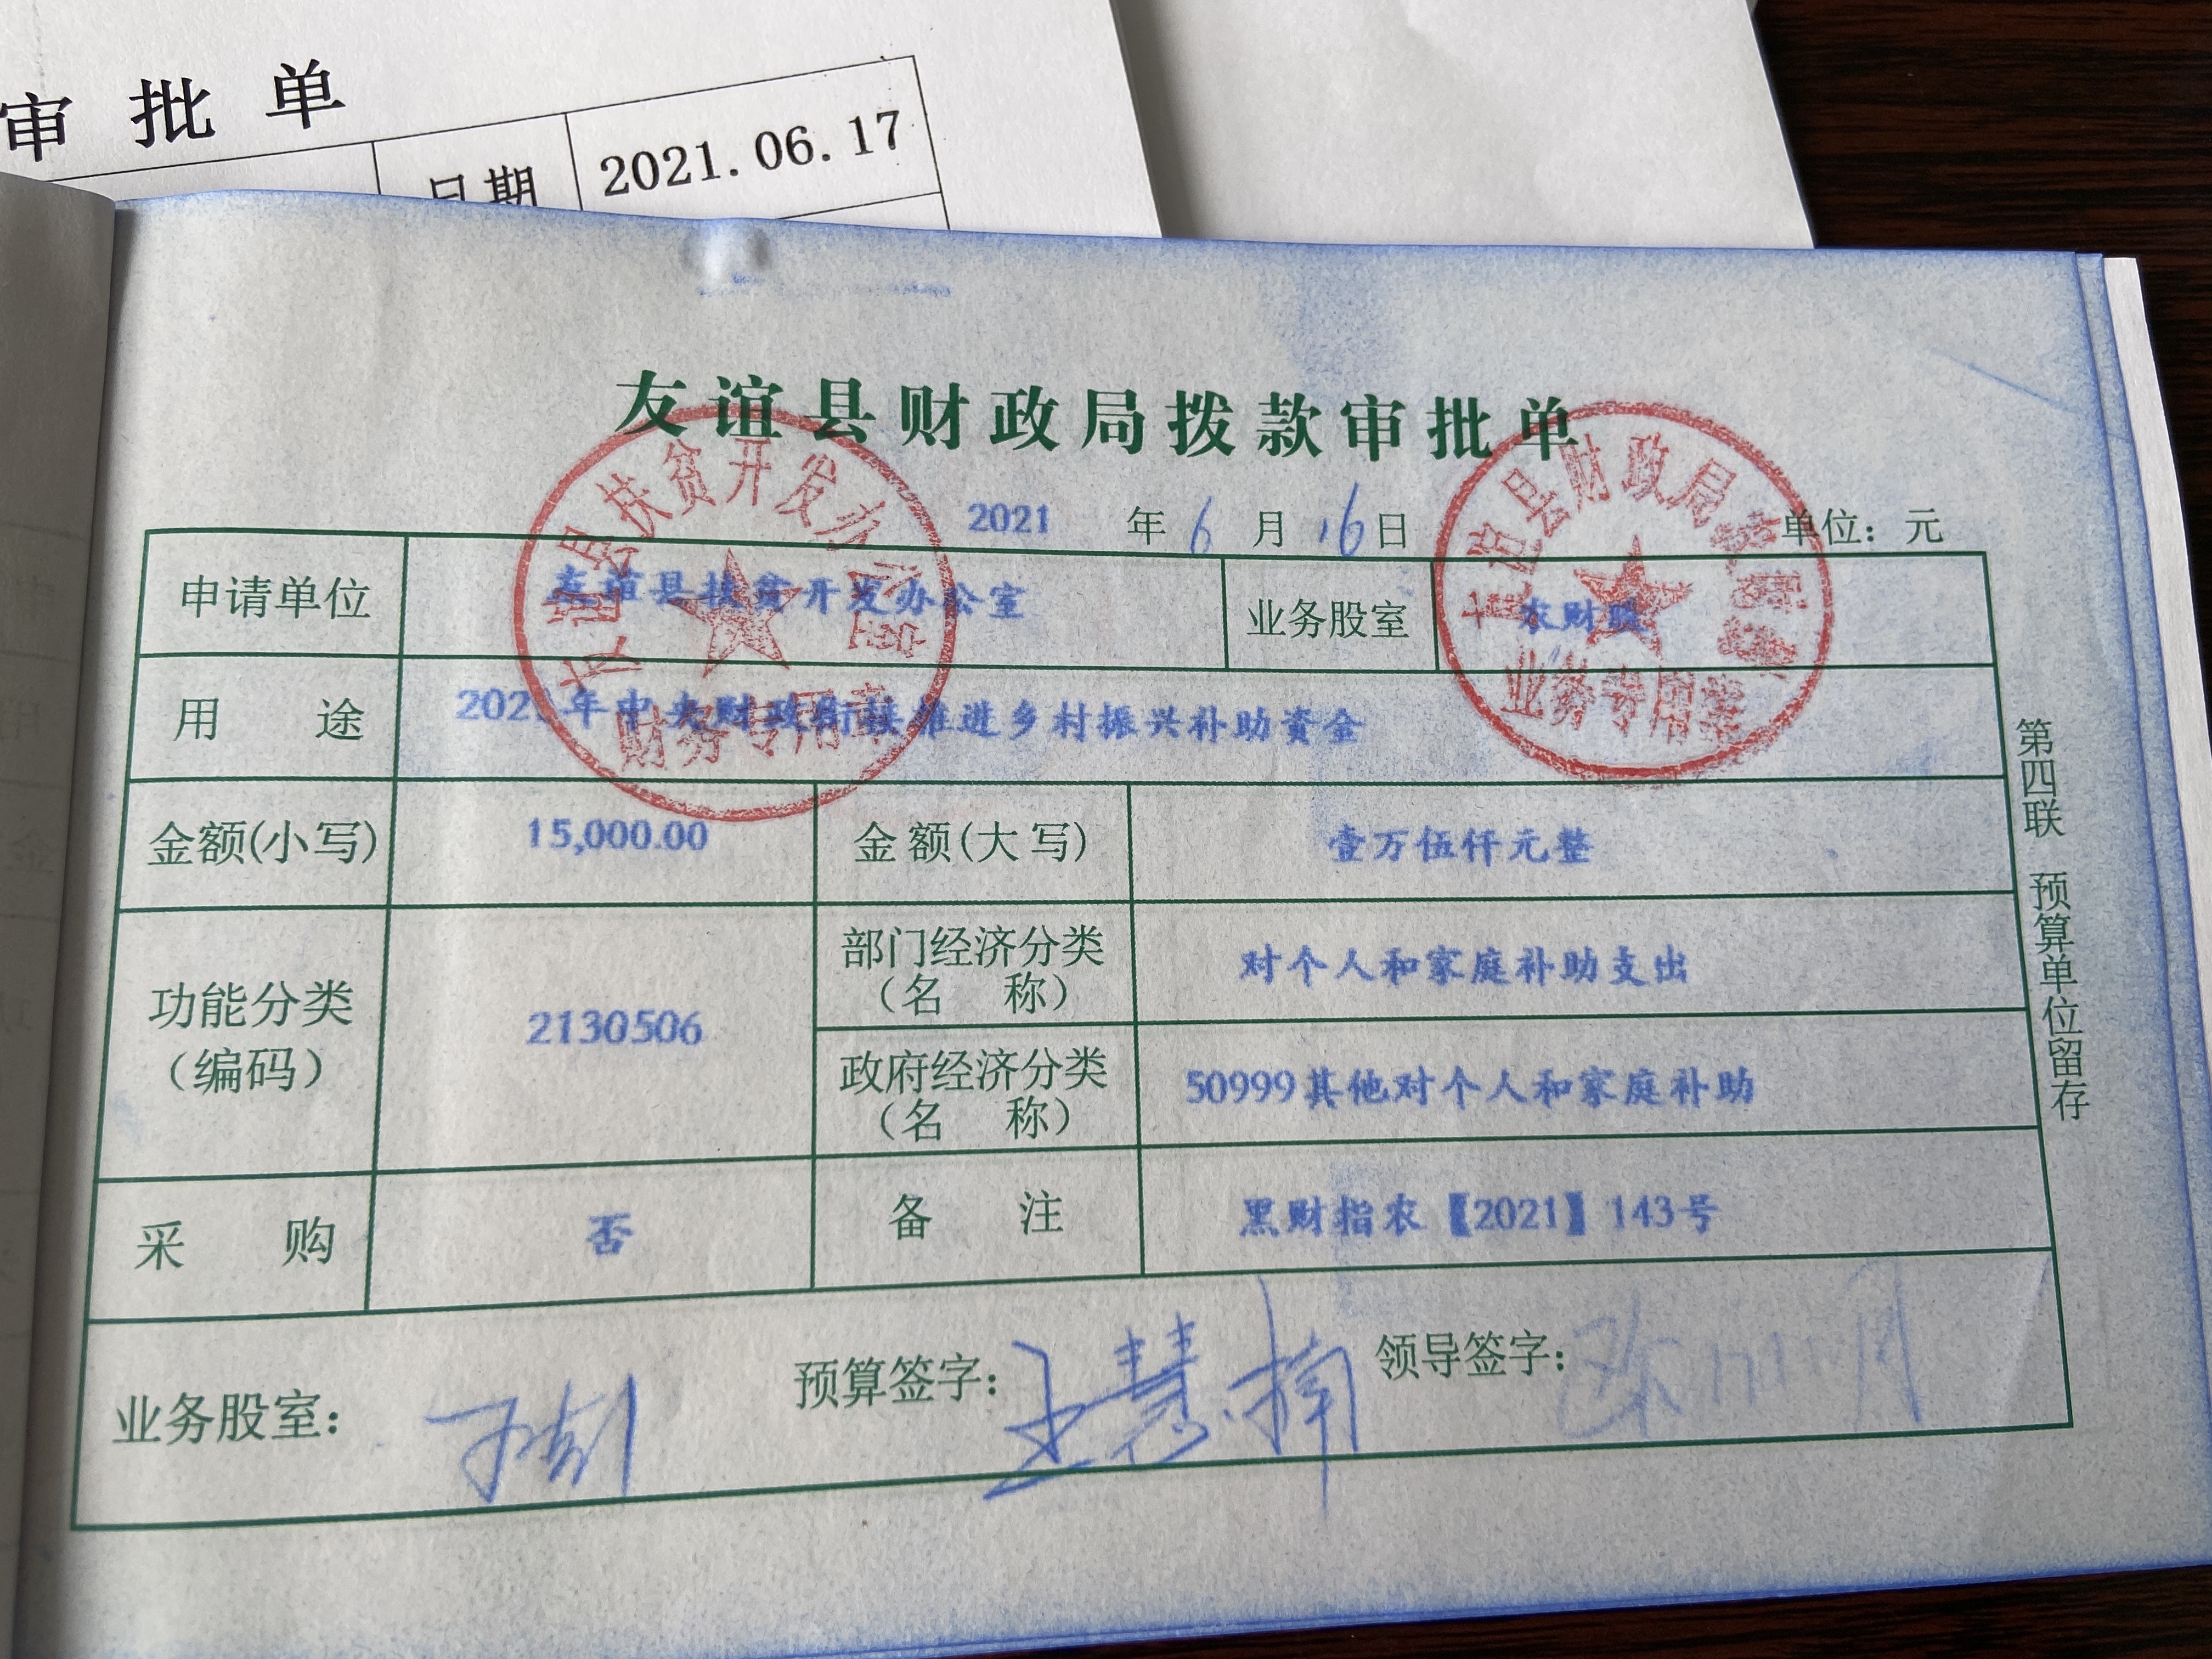 审批单
日期 2021.06.17
友谊县财政局拨款审批单
2021 年 6 月 16 日 单位：元
申请单位 友谊县扶贫开发办公室 业务股室 农财股
用途 2021年中央财政衔接推进乡村振兴补助资金
金额(小写) 15,000.00 金额(大写) 壹万伍仟元整
功能分类（编码） 2130506
部门经济分类（名称） 对个人和家庭补助支出
政府经济分类（名称） 50999其他对个人和家庭补助
采购 否 备注 黑财指农【2021】143号
业务股室： 预算签字：王慧楠 领导签字：
第四联 预算单位留存
友谊县扶贫开发办公室
财务专用章
友谊县财政局
业务专用章